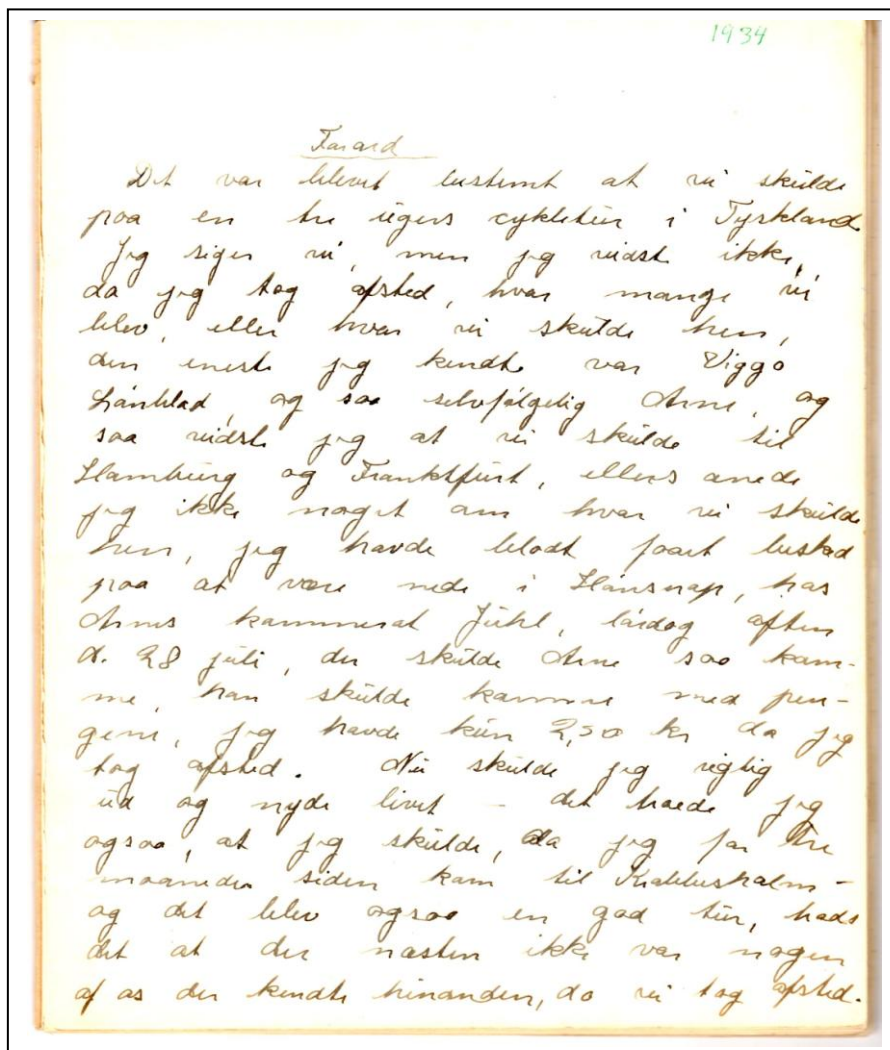 1934
Forord
Det var blevet bestemt at vi skulde
paa en tre ugers cykletur i Tyskland
Jeg siger vi, men jeg vidste ikke,
da jeg tog afsted, hvor mange vi
blev, eller hvor vi skulde hen,
den eneste jeg kendte var Viggo
og saa selvfølgelig Arne, og
saa vidste jeg at vi skulde til
Hamburg og Frankfurt, ellers anede
jeg ikke noget om hvor vi skulde
hen, jeg havde blodt faaet besked
paa at være nede i Hønsnap, hos
Arnes kammerat Juhl, lørdag aften
d. 28 juli, der skulde Arne saa kom-
me, han skulde komme med pen-
gene, jeg havde kun 2,50 kr da jeg
tog afsted. Nu skulde jeg rigtig
ud og nyde livet - det troede jeg
ogsaa, at jeg skulde, da jeg for tre
maaneder siden kom til Krabbesholm -
og det blev ogsaa en god tur, trods
det at der næsten ikke var nogen
af os der kendte hinanden, da vi tog afsted.